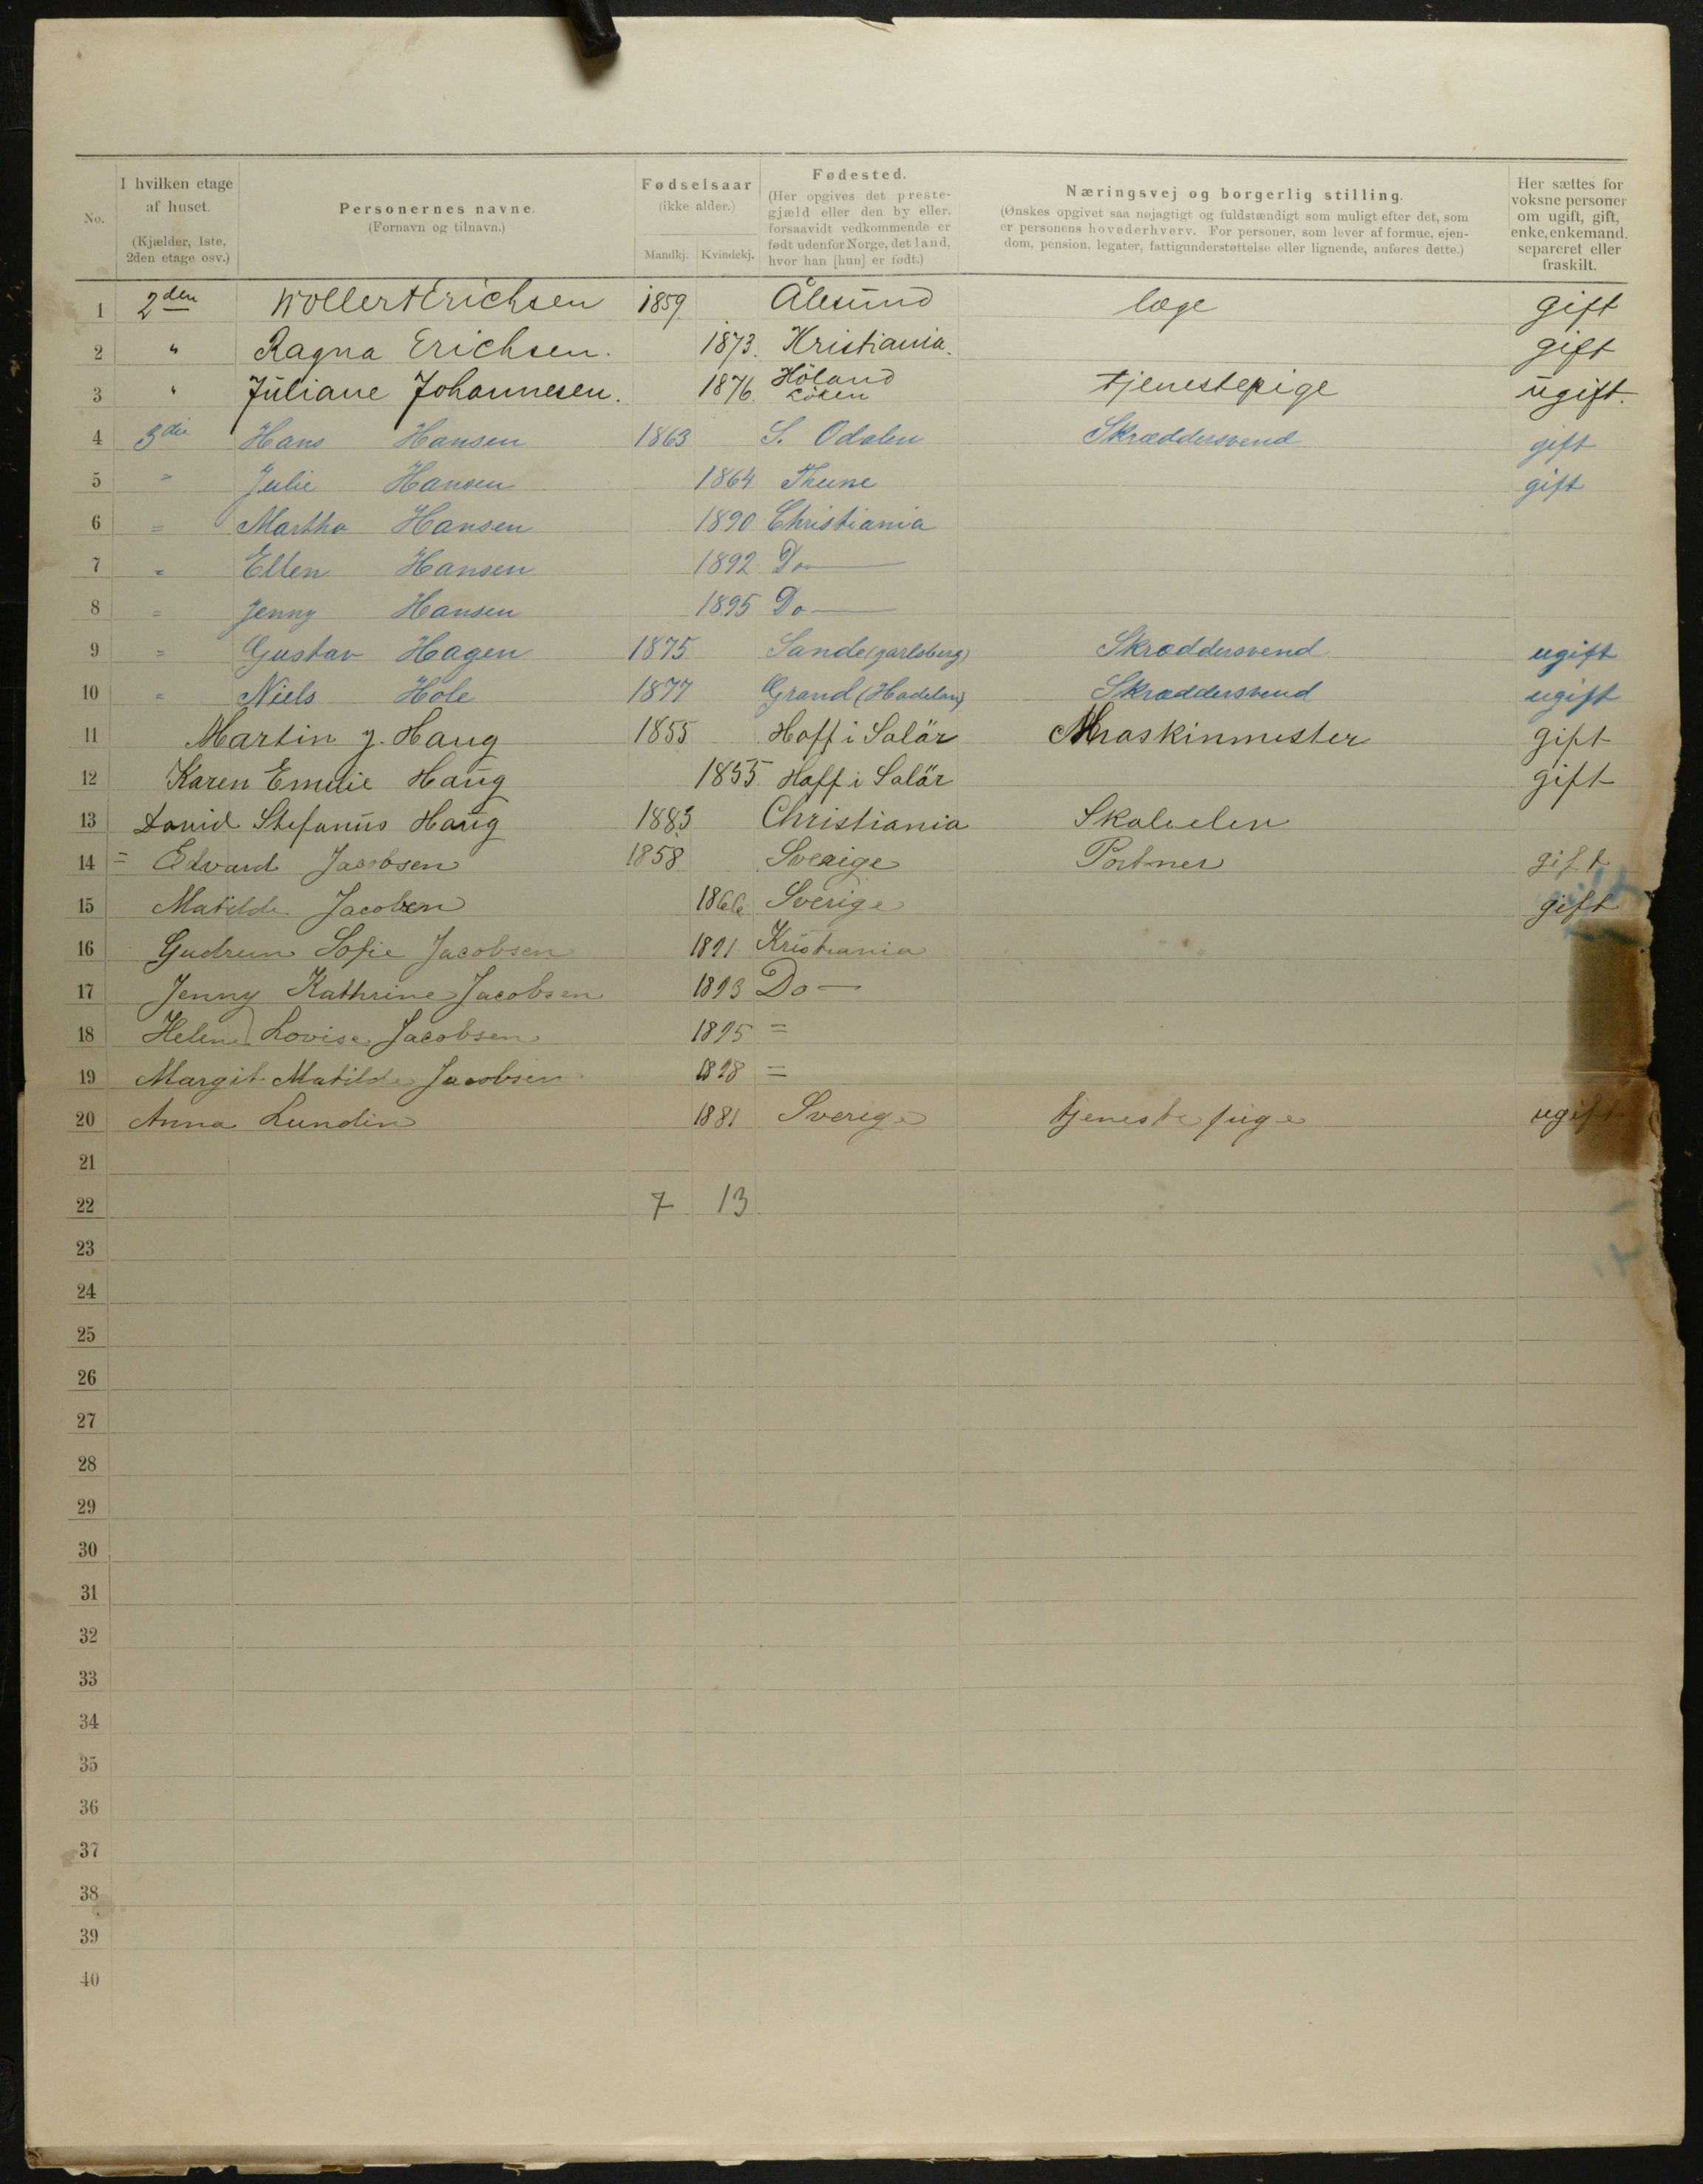 No.
I hvilken etage af huset.
(Kjælder, 1ste, 2den etage osv.)
Personernes navne.
(Fornavn og tilnavn.)
Fødselsaar
(ikke alder.)
Mandkj. Kvindekj.
Fødested.
(Her opgives det prestegjæld eller den by eller, forsaavidt vedkommende er født udenfor Norge, det land, hvor han [hun] er født.)
Næringsvej og borgerlig stilling.
(Ønskes opgivet saa nøjagtigt og fuldstændigt som muligt efter det, som er personens hovederhverv. For personer, som lever af formue, ejendom, pension, legater, fattigunderstøttelse eller lignende, anføres dette.)
Her sættes for voksne personer om ugift, gift, enke, enkemand, separeret eller fraskilt.
1 2den Wollert Erichsen 1859 Ålesund læge gift
2 " Ragna Erichsen. 1873. Kristiania. gift
3 " Juliane Johannesen. 1876 Höland Löken tjenestepige ugift.
4 3die Hans Hansen 1863 S. Odalen Skræddersvend gift
5 " Julie Hansen 1864 Thune gift
6 = Martha Hansen 1890 Christiania
7 = Ellen Hansen 1892 Do
8 = Jenny Hansen 1895 Do
9 = Gustav Hagen 1875 Sande (Jarlsberg) Skræddersvend ugift
10 = Niels Hole 1877 Grand (Hadelan) Skræddersvend ugift
11 Martin J. Haug 1855 Hoff i Solör Maskinmester gift
12 Karen Emilie Haug 1855 Hoff i Solör gift
13 David Stefanus Haug 1883 Christiania Skoleelev
14 = Edvard Jacobsen 1858 Sverige Portner gift
15 Matilde Jacobsen 1866 Sverige gift
16 Gudrun Sofie Jacobsen 1891 Kristiania
17 Jenny Kathrine Jacobsen 1893 Do
18 Helene Lovise Jacobsen 1895 =
19 Margit Matilde Jacobsen 1898 =
20 Anna Lundin 1881 Sverige tjenestepige ugift
21
22 7 13
23
24
25
26
27
28
29
30
31
32
33
34
35
36
37
38
39
40